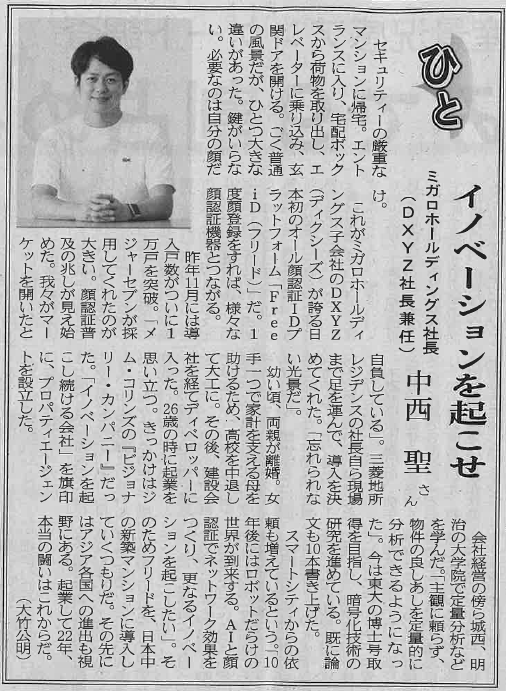 ひと
イノベーションを起こせ
ミガロホールディングス社長
（DXYZ社長兼任）
中西 聖さん
セキュリティーの厳重な
マンションに帰宅。エント
ランスに入り、宅配ボック
スから荷物を取り出し、エ
レベーターに乗り込み、玄
関ドアを開ける。ごく普通
の風景だが、ひとつ大きな
違いがあった。鍵がいらな
い。必要なのは自分の顔だ
け。
これがミガロホールディ
ングス子会社のDXYZ
（ディクシーズ）が誇る日
本初のオール顔認証IDプ
ラットフォーム「Free
iD（フリード）」だ。1
度顔登録をすれば、様々な
顔認証機器とつながる。
昨年11月には導
入戸数がついに1
万戸を突破。「メ
ジャーセブンが採
用してくれたのが
大きい。顔認証普
及の兆しが見え始
めた。我々がマー
ケットを開いたと
自負している」。三菱地所
レジデンスの社長自ら現場
まで足を運んで、導入を決
めてくれた。「忘れられな
い光景だ」。
幼い頃、両親が離婚。女
手一つで家計を支える母を
助けるため、高校を中退し
て大工に。その後、建設会
社を経てディベロッパーに
入った。26歳の時に起業を
思い立つ。きっかけはジ
ム・コリンズの『ビジョナ
リー・カンパニー』だっ
た。「イノベーションを起
こし続ける会社」を旗印
に、プロパティエージェン
トを設立した。
会社経営の傍ら城西、明
治の大学院で定量分析など
を学んだ。「主観に頼らず、
物件の良しあしを定量的に
分析できるようになっ
た」。今は東大の博士号取
得を目指し、暗号化技術の
研究を進めている。既に論
文も10本書き上げた。
スマートシティからの依
頼も増えているという。「10
年後にはロボットだらけの
世界が到来する。AIと顔
認証でネットワーク効果を
つくり、更なるイノベー
ションを起こしたい」。そ
のためフリードを、日本中
の新築マンションに導入し
ていくつもりだ。その先に
はアジア各国への進出も視
野にある。起業して22年、
本当の闘いはこれからだ。
（大竹公明）